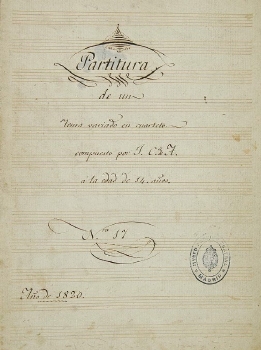 Partitura
de un
Tema variado en cuarteto
compuesto por J. C. de A.
á la edad de 14 años.
N.º 17
Año de 1820.
MADRID